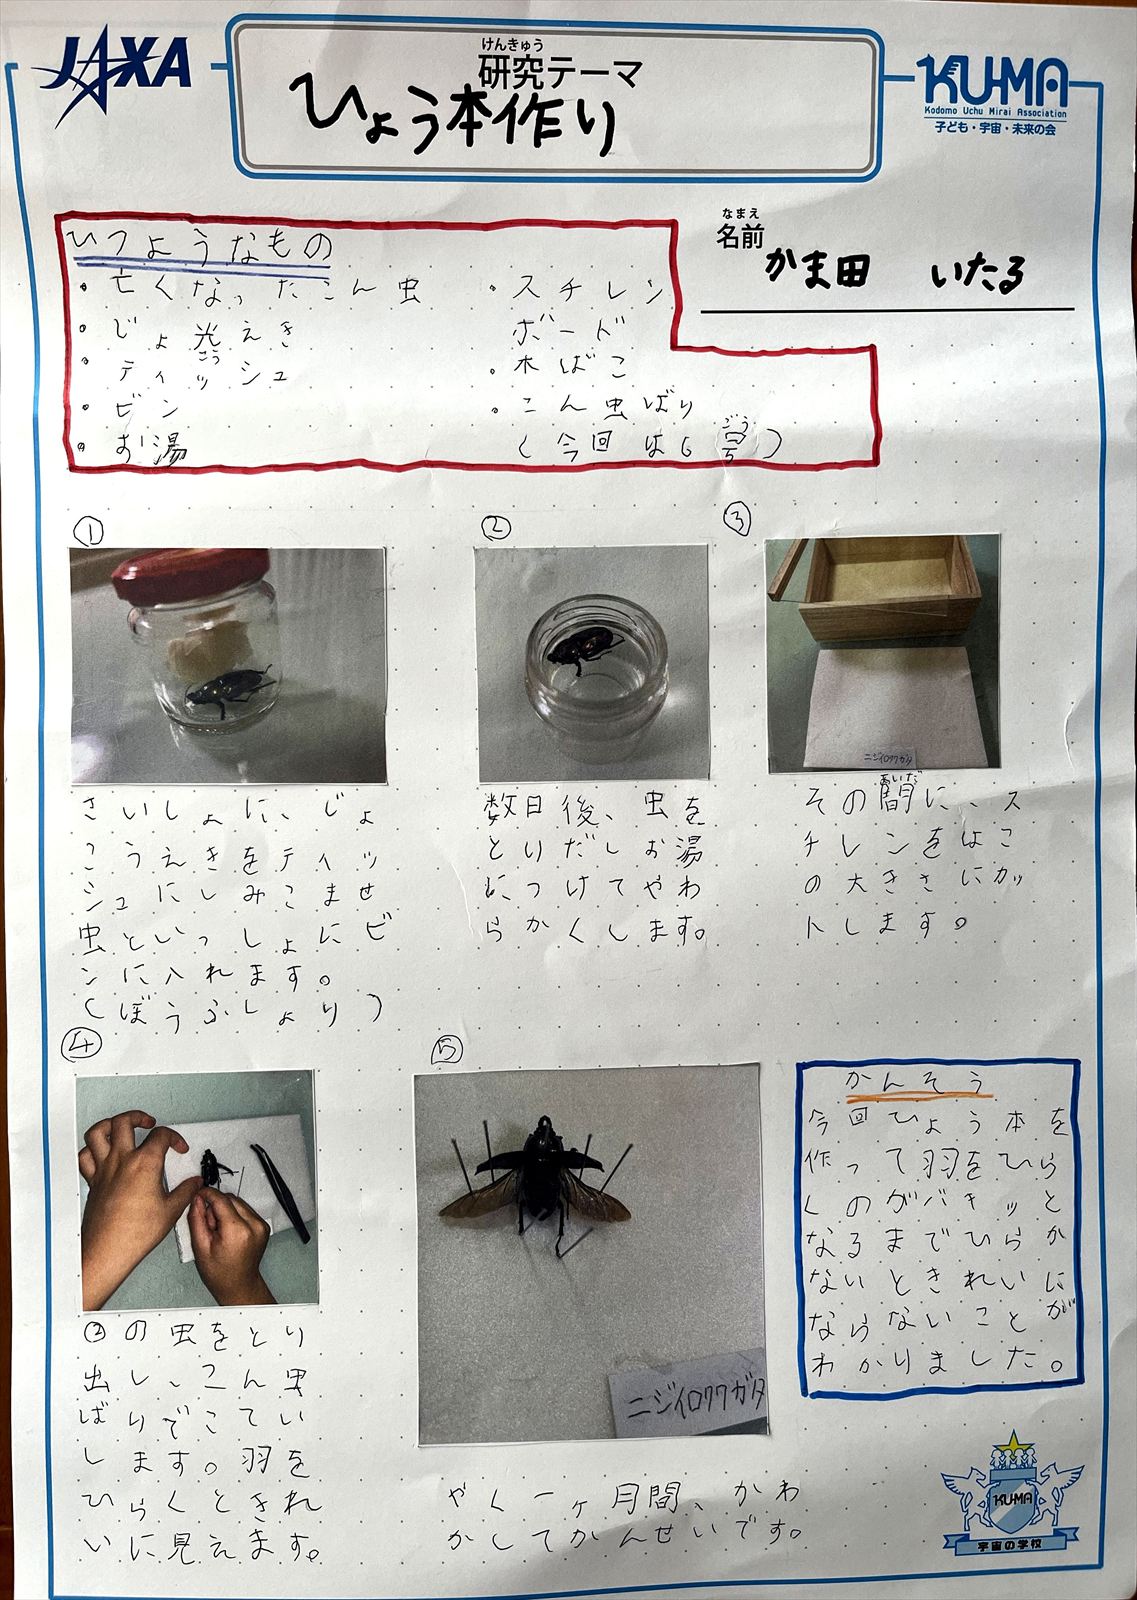 JAXA
けんきゅう
研究テーマ
ひょう本作り
KU-MA
Kodomo Uchu Mirai Association
子ども・宇宙・未来の会
なまえ
名前
かま田 いたる
ひつようなもの
・亡くなったこん虫
・じょ光えき
こう
・ティッシュ
・ビン
・お湯
・スチレン
ボード
・木ばこ
・こん虫ばり
ごう
(今回は6号)
①
さいしょに、じょ
こうえきをティッ
シュにしみこませ
虫といっしょにビ
ンに入れます。
(ぼうふしょり)
②
数日後、虫を
とりだしお湯
につけてやわ
らかくします。
③
ニジイロクワガタ
あいだ
その間に、ス
チレンをはこ
の大きさにカッ
トします。
④
②の虫をとり
出し、こん虫
ばりでこてい
します。羽を
ひらくときれ
いに見えます。
⑤
ニジイロクワガタ
やく一ヶ月間、かわ
かしてかんせいです。
かんそう
今回ひょう本を
作って羽をひら
くのがバキッと
なるまでひらか
ないときれいに
ならないことが
わかりました。
KU-MA
宇宙の学校